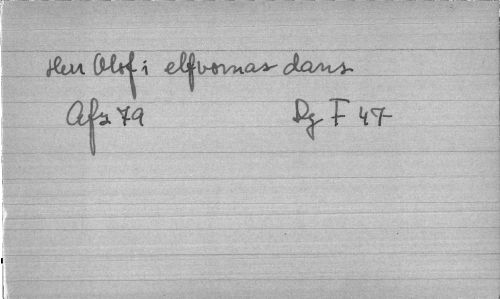 Herr Olof i elfvornas dans
Afz 79 Dg F 47